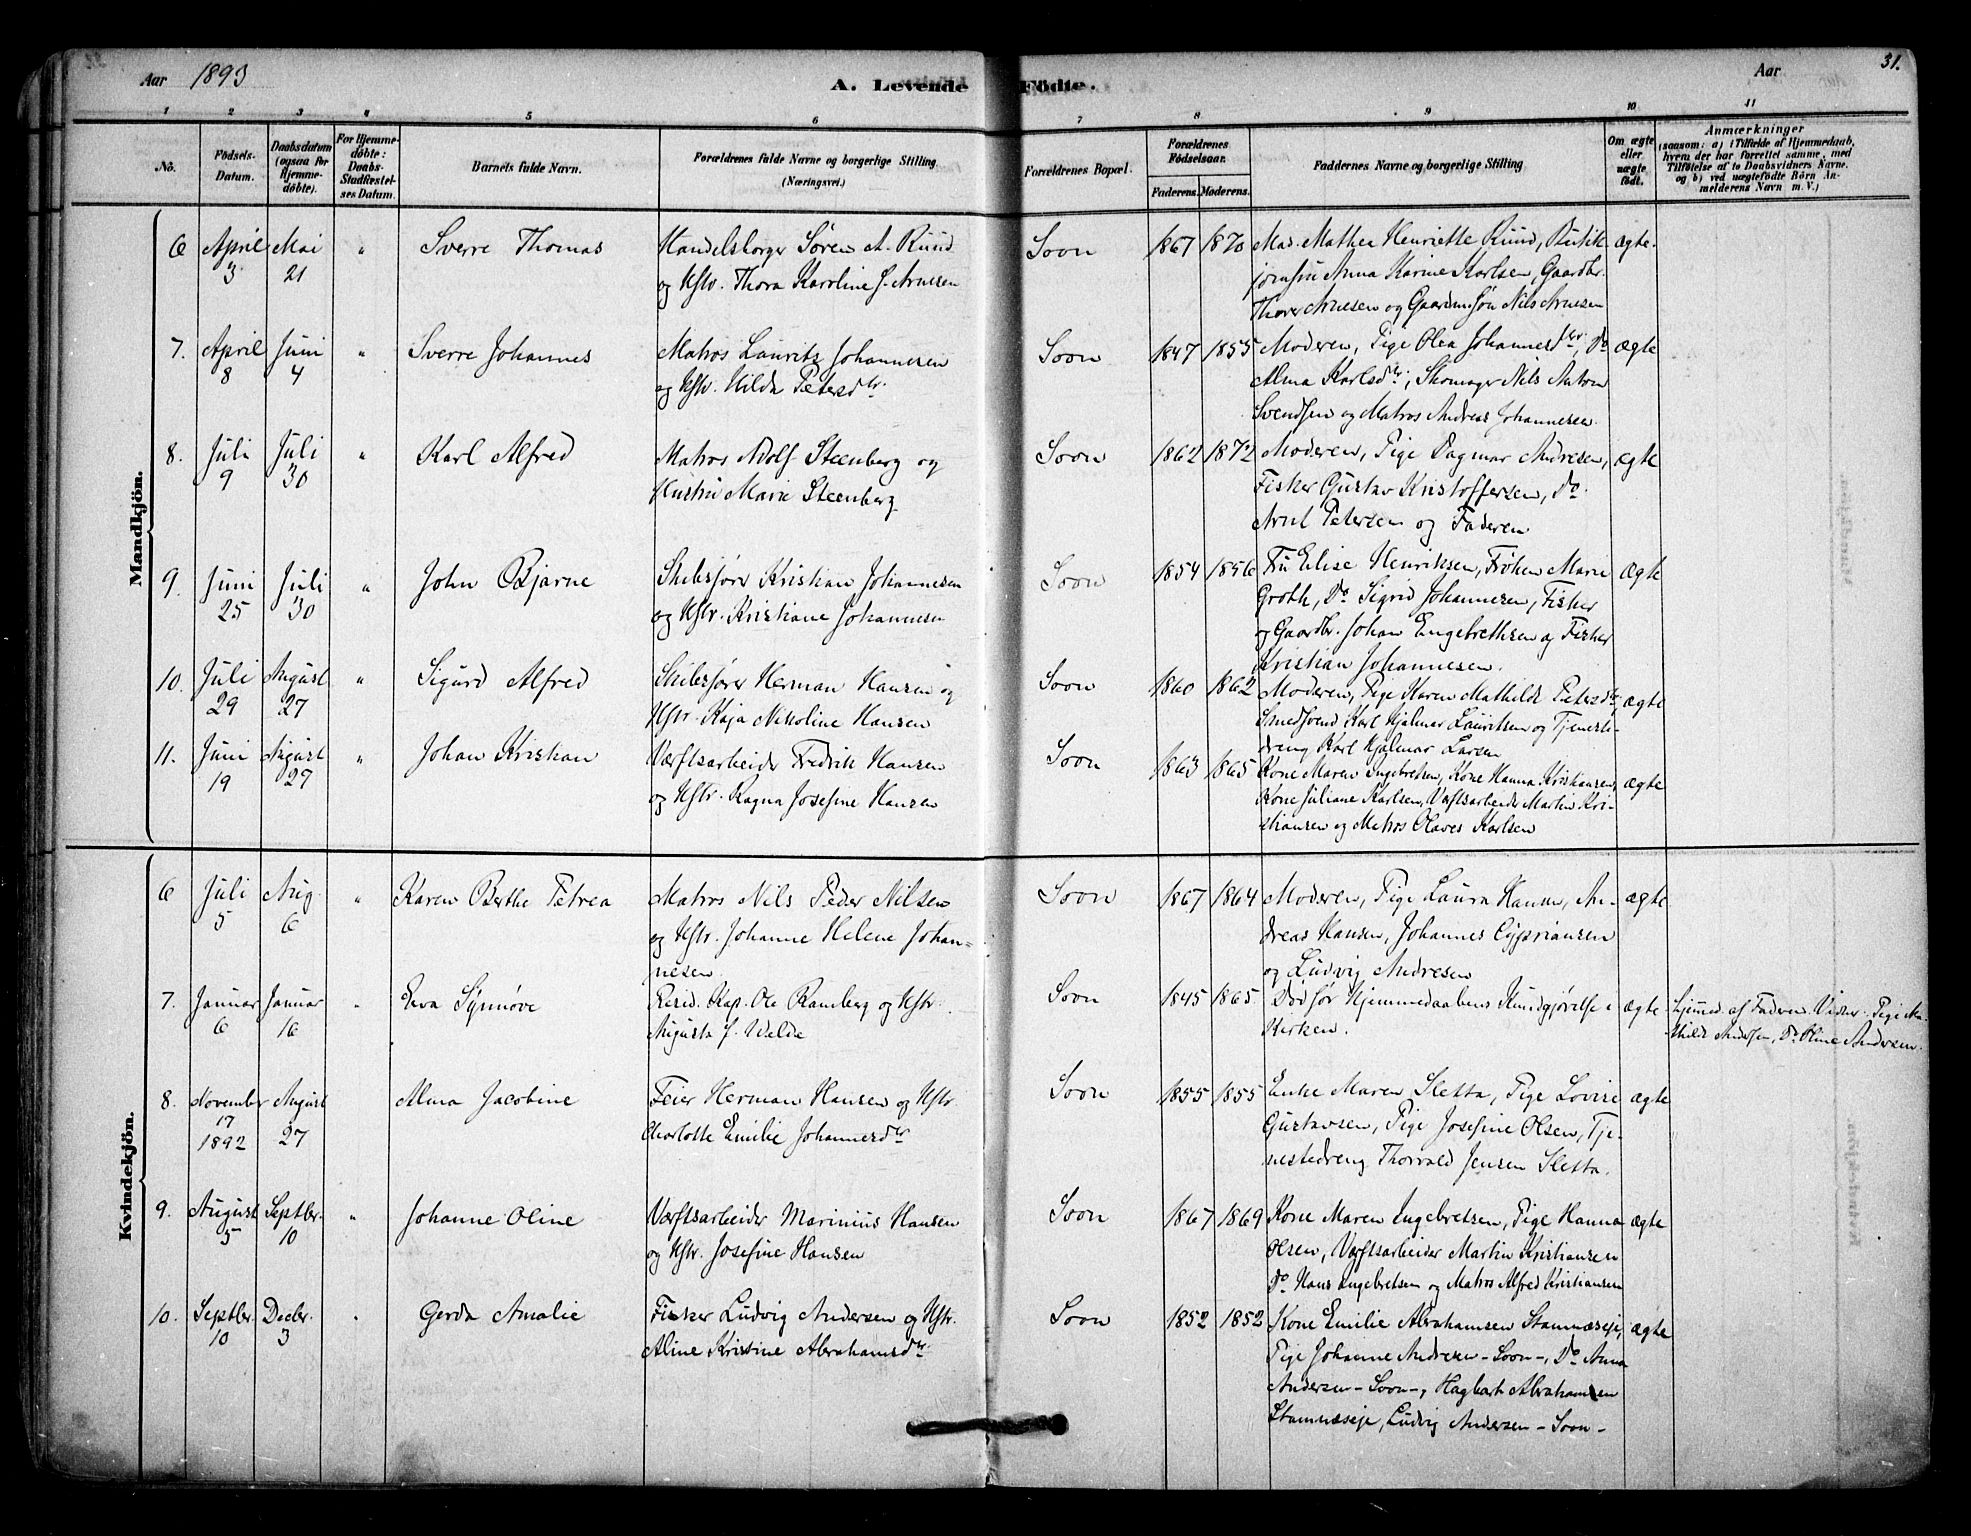 Aar 1893 A. Levende Födte. Aar 31.
1 2 3 4 5 6 7 8 9 10 11
No. Födsels-Datum. Daabsdatum (ogsaa for Hjemme-döbte). For Hjemme-döbte: Daabs-Stadfæstel-ses Datum. Barnets fulde Navn. Forældrenes fulde Navne og borgerlige Stilling. (Næringsvei.) Forældrenes Bopæl. Forældrenes Födselsaar. Faderens. Moderens. Faddernes Navne og borgerlige Stilling. Om ægte eller uægte födt. Anmærkninger (saasom: a) i Tilfælde af Hjemmedaab, hvem der har forrettet samme, med Tilföielse af to Daabsvidners Navne, og b) ved uægtefödte Börn An-melderens Navn m. V.)
Mandkjön.
6 April 3 Mai 21 " Sverre Thomas Handelsborger Søren A. Ruud Soon 1867 1870 Mad. Mathea Henriette Ruud, Butik ægte.
og Hstr. Thora Karoline J. Arnesen jomfru Anna Karine Karlsen, Gaardbr.
Thorer Arnesen og Gaardm.søn Nils Arnesen
7. April 8 Juni 4 " Sverre Johannes Matros Laurits Johannesen Soon 1847 1855 Moderen, Pige Olea Johannesdtr, Do ægte
og Hstr. Hilda Petersdtr. Alma Karlsdtr., Skomager Nils Anton
Svendsen og Matros Andreas Johannesen.
8. Juli 9 Juli 30 " Karl Alfred Matros Adolf Steenberg og Soon 1862 1872 Moderen, Pige Dagmar Andresen, ægte
Hustru Marie Steenberg Fisker Gustav Kristoffersen, Do.
Arnt Petersen og Faderen
9. Juni 25 Juli 30 " John Bjarne Skibsfører Kristian Johannesen Soon 1854 1856 Fru Elise Henriksen, Frøken Marie ægte
og Hstr. Kristiane Johannesen Groth, Do Sigrid Johannesen, Fisker
og Gaardbr. Johan Engebrethsen og Fisker
Kristian Johannesen.
10. Juli 29 August 27 " Sigurd Alfred Skibsfører Herman Hansen og Soon 1860 1862 Moderen, Pige Karen Mathilde Petersdtr, ægte
Hstr. Kaja Nikoline Hansen Smedsvend Karl Hjalmar Lauritsen og Tjeneste-
dreng Karl Hjalmar Larsen
11. Juni 19 August 27 " Johan Kristian Værftsarbeider Fredrik Hansen Soon 1863 1865 Kone Maren Ingebretsen, Kone Hanna Kristiansen, ægte
og Hstr. Ragna Josefine Hansen Kone Juliane Karlsen, Værftsarbeider Martin Kri-
stiansen og Matros Olaves Karlsen
Kvindekjön.
6 Juli 5 Aug. 6 " Karen Berthe Petrea Matros Nils Peder Nilsen Soon 1867 1864 Moderen, Pige Laura Hansen, An- ægte
og Hstr. Johanne Helene Johan- dreas Hansen, Johannes Cyprianssen
nesen. og Ludvig Andresen
7. Januar 6 Januar 16 " Eva Synnøve Resid. Kap. Ole Ramberg og Hstr. Soon 1845 1865 Død før Hjemmedaabens Kundgjørelse i ægte Hjemmed. af Faderen. Vidner: Pige Ma-
Augusta J. Welde Kirken. thilde Andersen, Do Oline Andersen.
8. November 17 1892 August 27 Alma Jacobine Feier Herman Hansen og Hstr. Soon 1855 1855 Enke Maren Sletta, Pige Lovise ægte
Charlotte Emilie Johannesdtr Gustavsen, Pige Josefine Olsen, Tje-
nestedreng Thorvald Jensen Sletta.
9. August 5 Septbr. 10 " Johanne Oline Værftsarbeider Marinius Hansen Soon 1867 1869 Kone Maren Ingebretsen, Pige Hanna ægte
og Hstr. Josefine Hansen Olsen, Værftsarbeider Martin Kristiansen
Do Hans Ingebretsen og Matros Alfred Kristiansen
10. Septbr. 10 Decbr. 3 " Gerda Amalie Fisker Ludvig Andersen og Hstr. Soon 1852 1852 Kone Emilie Abrahamsen Stamnæseje, ægte
Aline Kristine Abrahamsdtr. Pige Johanne Andresen - Soon -, Do Anna
Andersen - Soon -, Hagbart Abrahamsen
Stamnæseje, Ludvig Andersen - Soon -